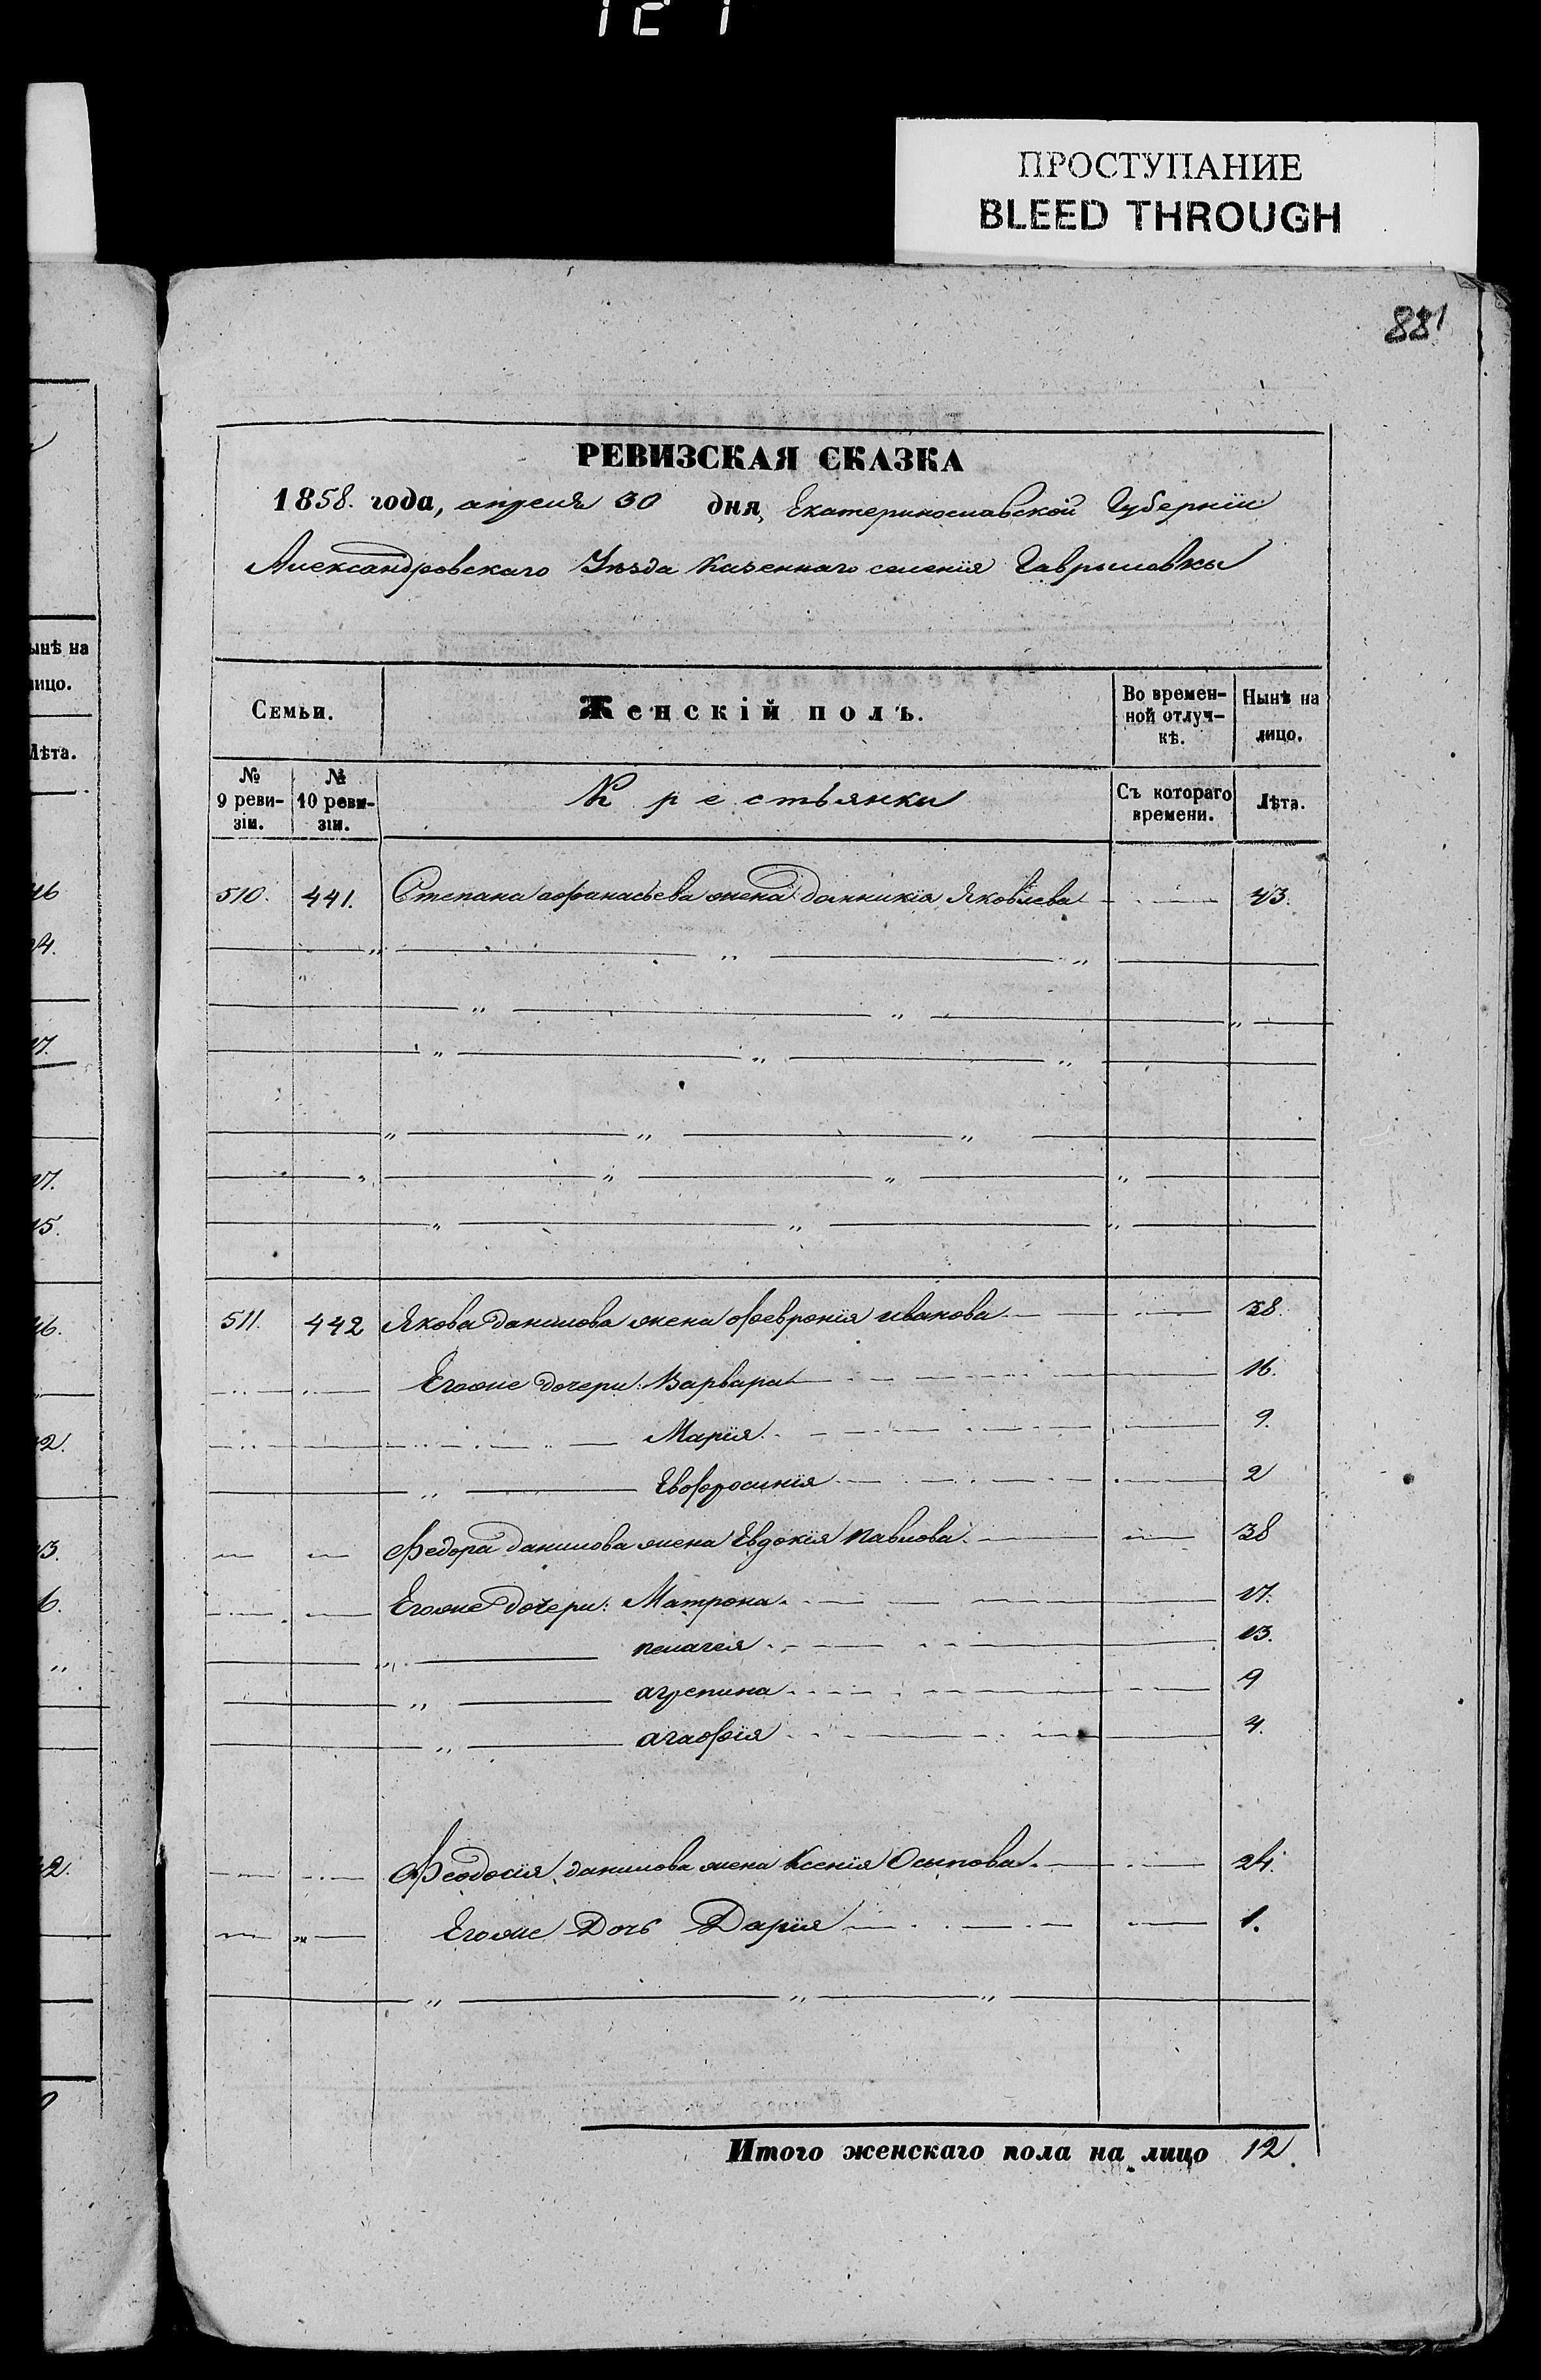 121
ПРОСТУПАНИЕ
BLEED THROUGH
881
РЕВИЗСКАЯ СКАЗКА
1858. года, апреля 30 дня, Екатеринославской Губернiи
Александровскаго Уѣзда Казеннаго селенiя Гавриловки
Семьи. Женскiй полъ. Во времен-ной отлуч-кѣ. Нынѣ на лицо.
№ 9 реви-зiи. № 10 реви-зiи. Крестьянки Съ котораго времени. Лѣта.
510. 441. Степана афанасьева жена Домникiя Яковлева 43.
511. 442 Якова данилова жена февронiя иванова 38.
Егоже дочери: Варвара 16.
Марiя. 9.
Евфросинiя 2
Федора данилова жена Евдокiя павлова. 38
Егоже дочери: Матрона. 17.
пелагея 13.
агрепина 9
агафiя 4.
Феодосiя данилова жена Ксенiя Осипова. 24.
Егоже Дочь Дарiя 1.
Итого женскаго пола на лицо 12.
ынѣ на
лицо.
Лѣта.